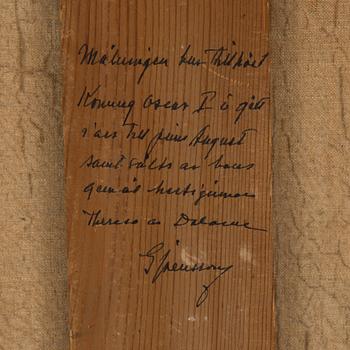 Målningen har tillhört
Konung Oscar I
till prins August
samt såldes av hans
gemål hertiginnan
Theresa av Dalarne